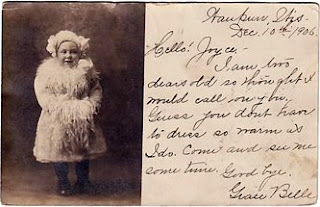 Waupun, Wis.
Dec. 10th 1906.
Hello! Joyce—
I am two
years old so thought I
would call on you.
Guess you dont have
to dress so warm as
I do. Come and see me
some time. Good bye.
Grace Belle